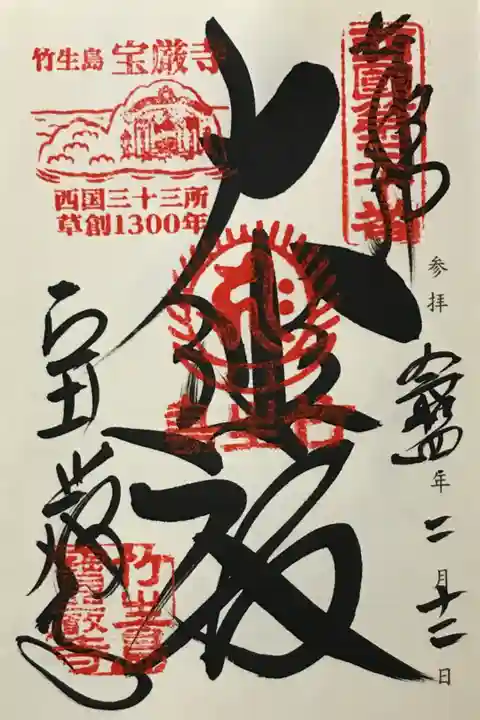 竹生島 宝厳寺
西国三十三所
草創1300年
西國第三十番
参拝
年二月十二日
大悲殿
竹生島
宝厳寺
竹生島
寶嚴寺